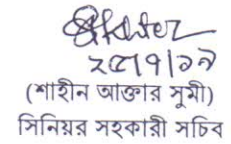 ২৫/৭/১৯
(শাহীন আক্তার সুমী)
সিনিয়র সহকারী সচিব